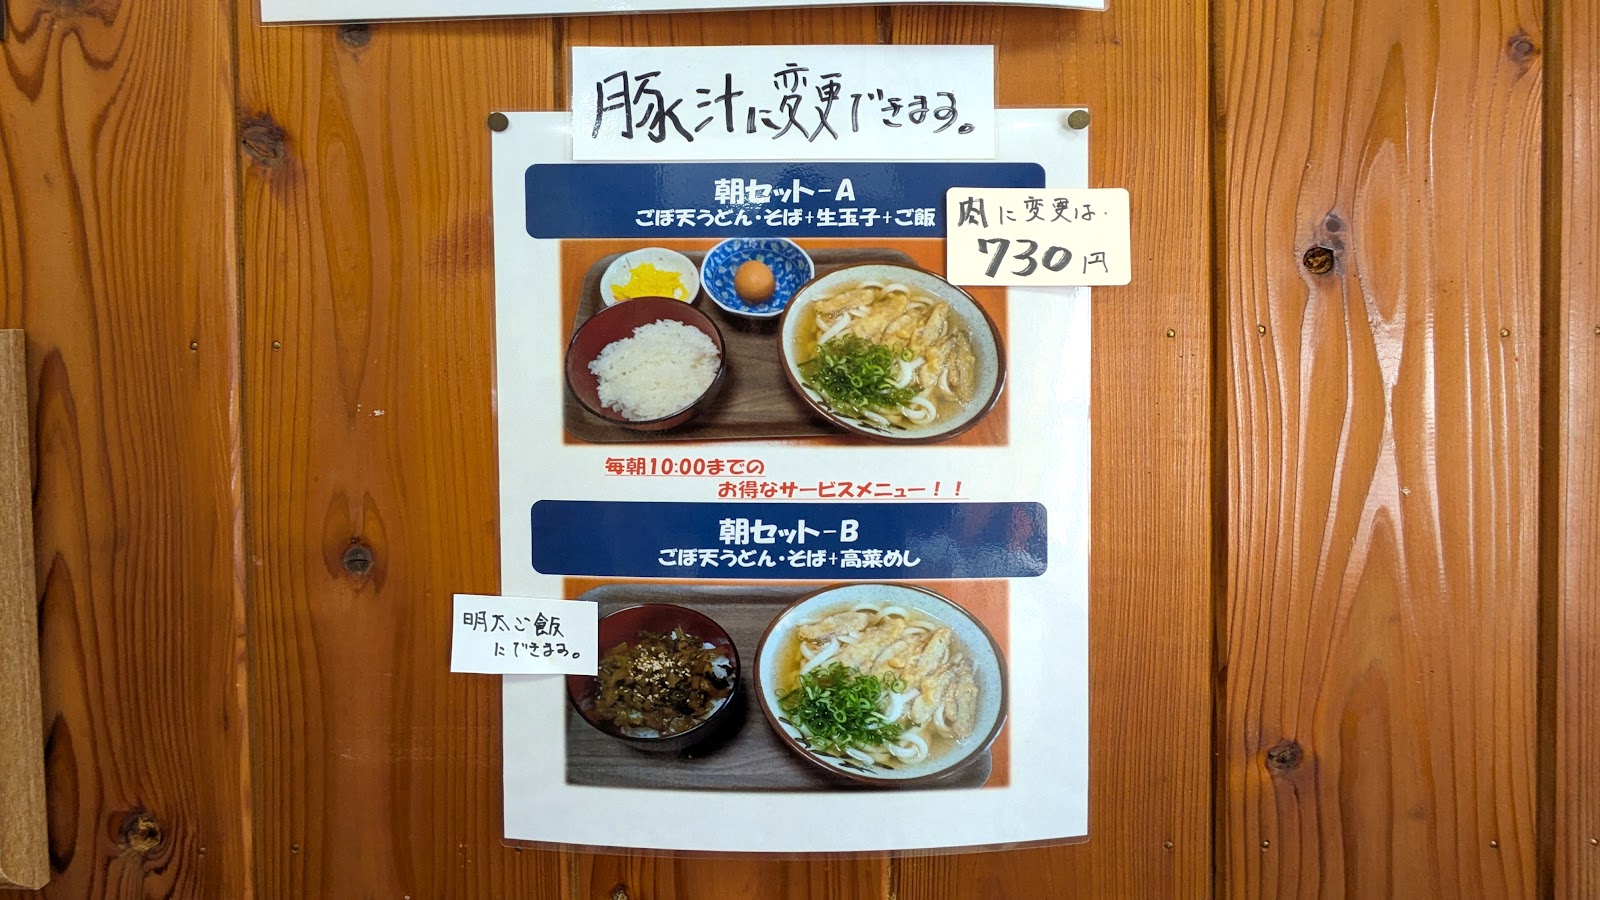 豚汁に変更できます。
朝セット-A
ごぼ天うどん・そば+生玉子+ご飯
肉に変更は・
730円
毎朝10:00までの
お得なサービスメニュー！！
朝セット-B
ごぼ天うどん・そば+高菜めし
明太ご飯
にできます。